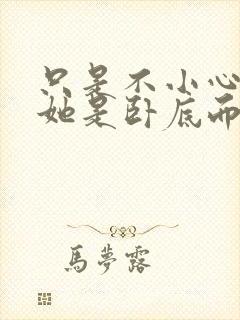 只是不小心
她是卧底而
馬夢露